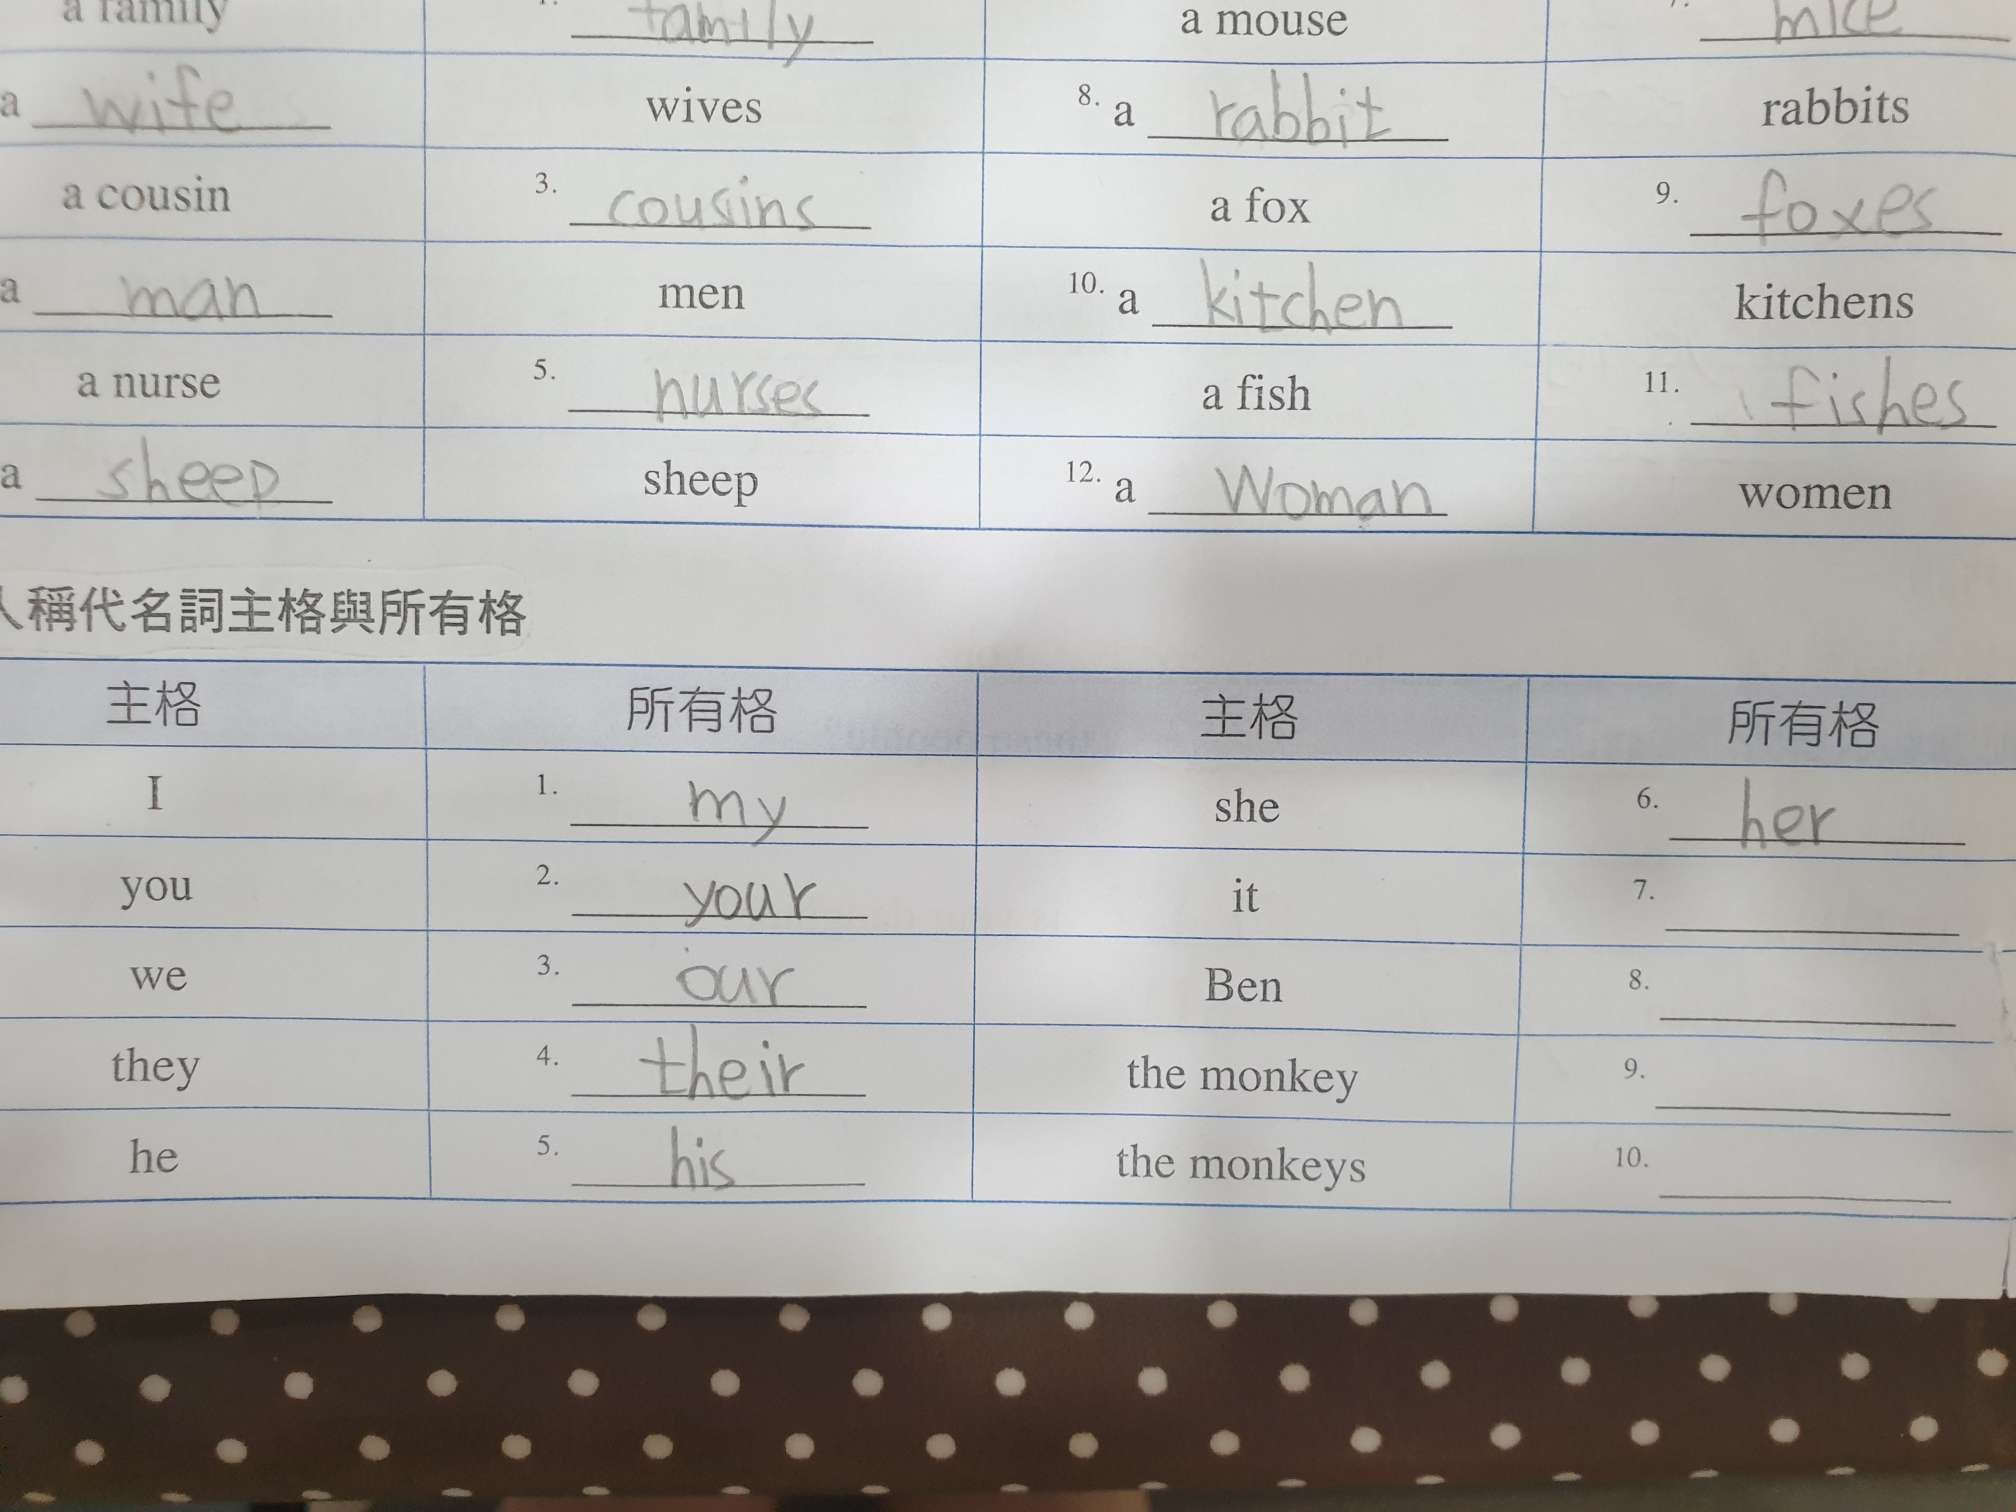 a family 1. family a mouse 7. mice
a wife wives 8. a rabbit rabbits
a cousin 3. cousins a fox 9. foxes
a man men 10. a kitchen kitchens
a nurse 5. nurses a fish 11. fishes
a sheep sheep 12. a Woman women
人稱代名詞主格與所有格
主格 所有格 主格 所有格
I 1. my she 6. her
you 2. your it 7.
we 3. our Ben 8.
they 4. their the monkey 9.
he 5. his the monkeys 10.